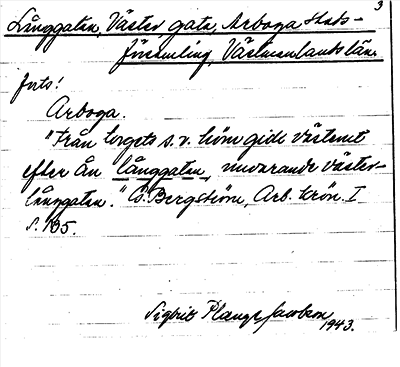 3
Långgatan, Väster, gata, Arboga stads-
församling, Västmanlands län.
forts!
Arboga.
"Från torgets s.v. hörn gick västerut
efter ån långgatan, nuvarande Väster-
långgatan." G. Bergström, Arb. krön. I
s. 195.
Sigbrit Plange Jacobson
1943.